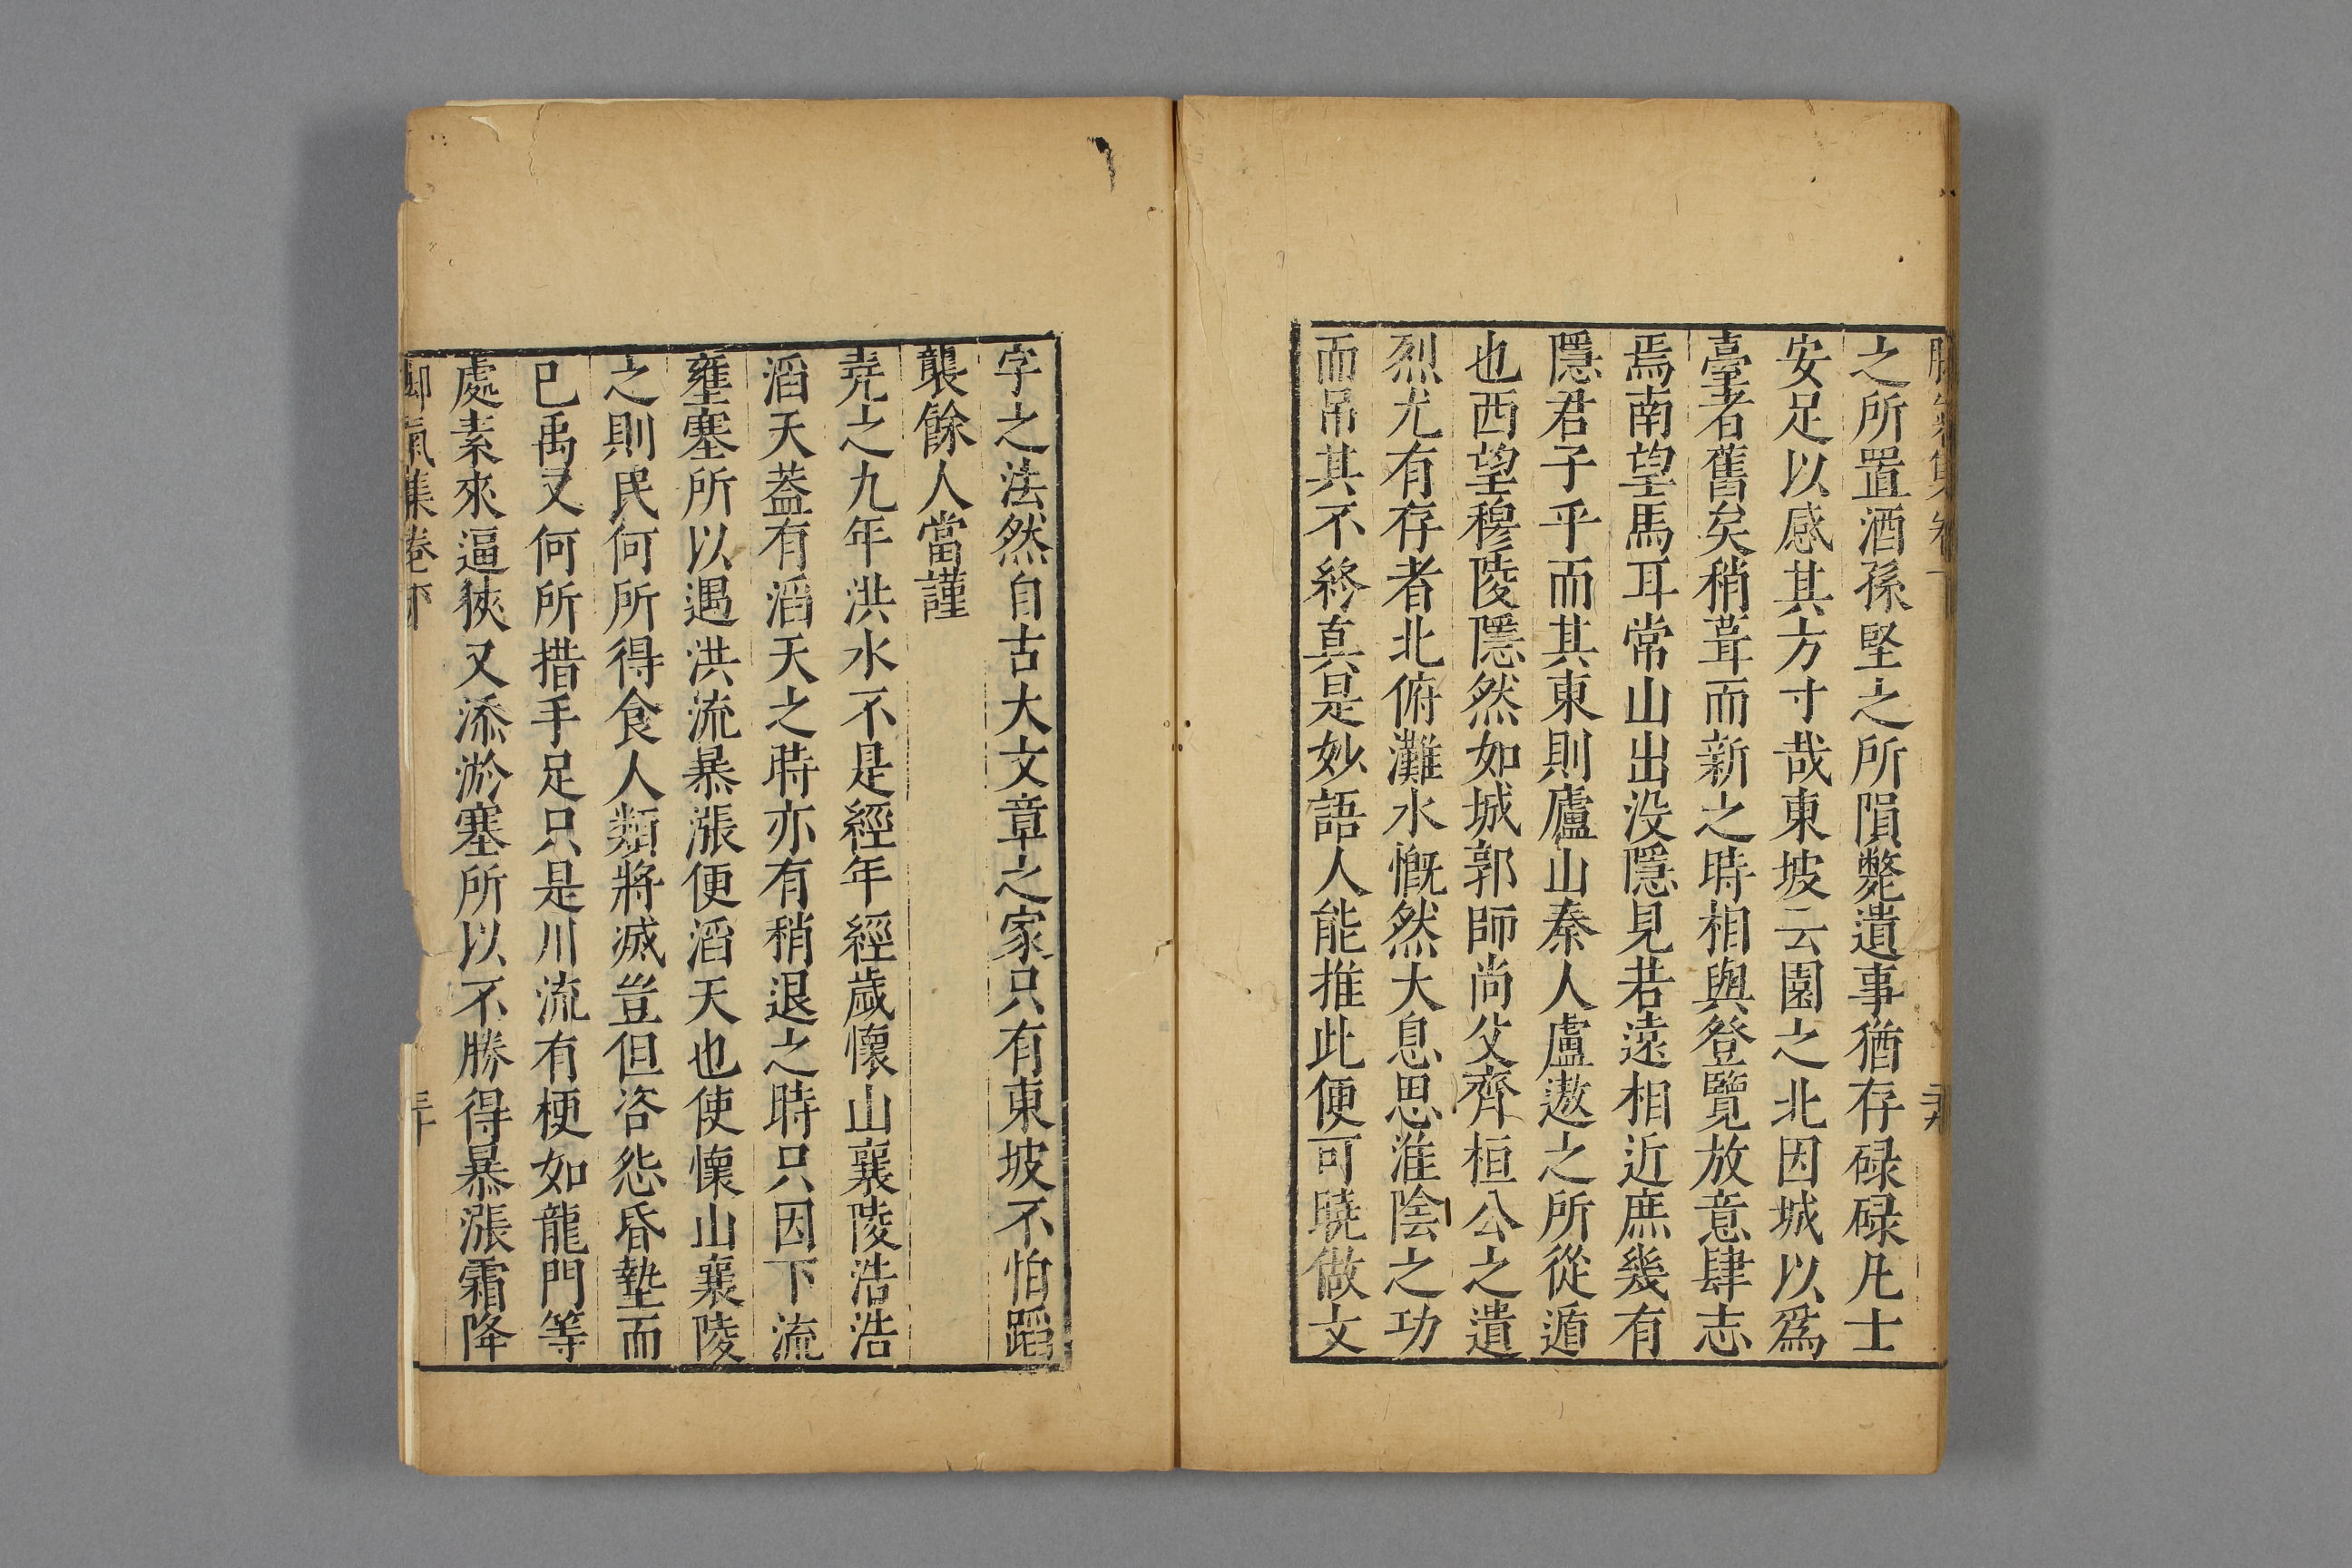 之所置酒孫堅之所隕斃遺事猶存碌碌凡士
安足以感其方寸哉東坡云園之北因城以爲
臺者舊矣稍葺而新之時相與登覽放意肆志
焉南望馬耳常山出没隱見若遠相近庶幾有
隱君子乎而其東則廬山秦人盧遨之所從遁
也西望穆陵隱然如城郭師尚父齊桓公之遺
烈尤有存者北俯灘水慨然大息思淮陰之功
而吊其不終真是妙語人能推此便可曉做文
字之法然自古大文章之家只有東坡不怕蹈
襲餘人當謹
尭之九年洪水不是經年經歲懷山襄陵浩浩
滔天葢有滔天之時亦有稍退之時只因下流
壅塞所以遇洪流暴漲便滔天也使懷山襄陵
之則民何所得食人類將滅豈但咨怨昏墊而
已禹又何所措手足只是川流有梗如龍門等
處素來逼狹又添淤塞所以不勝得暴漲霜降
脚氣集卷下